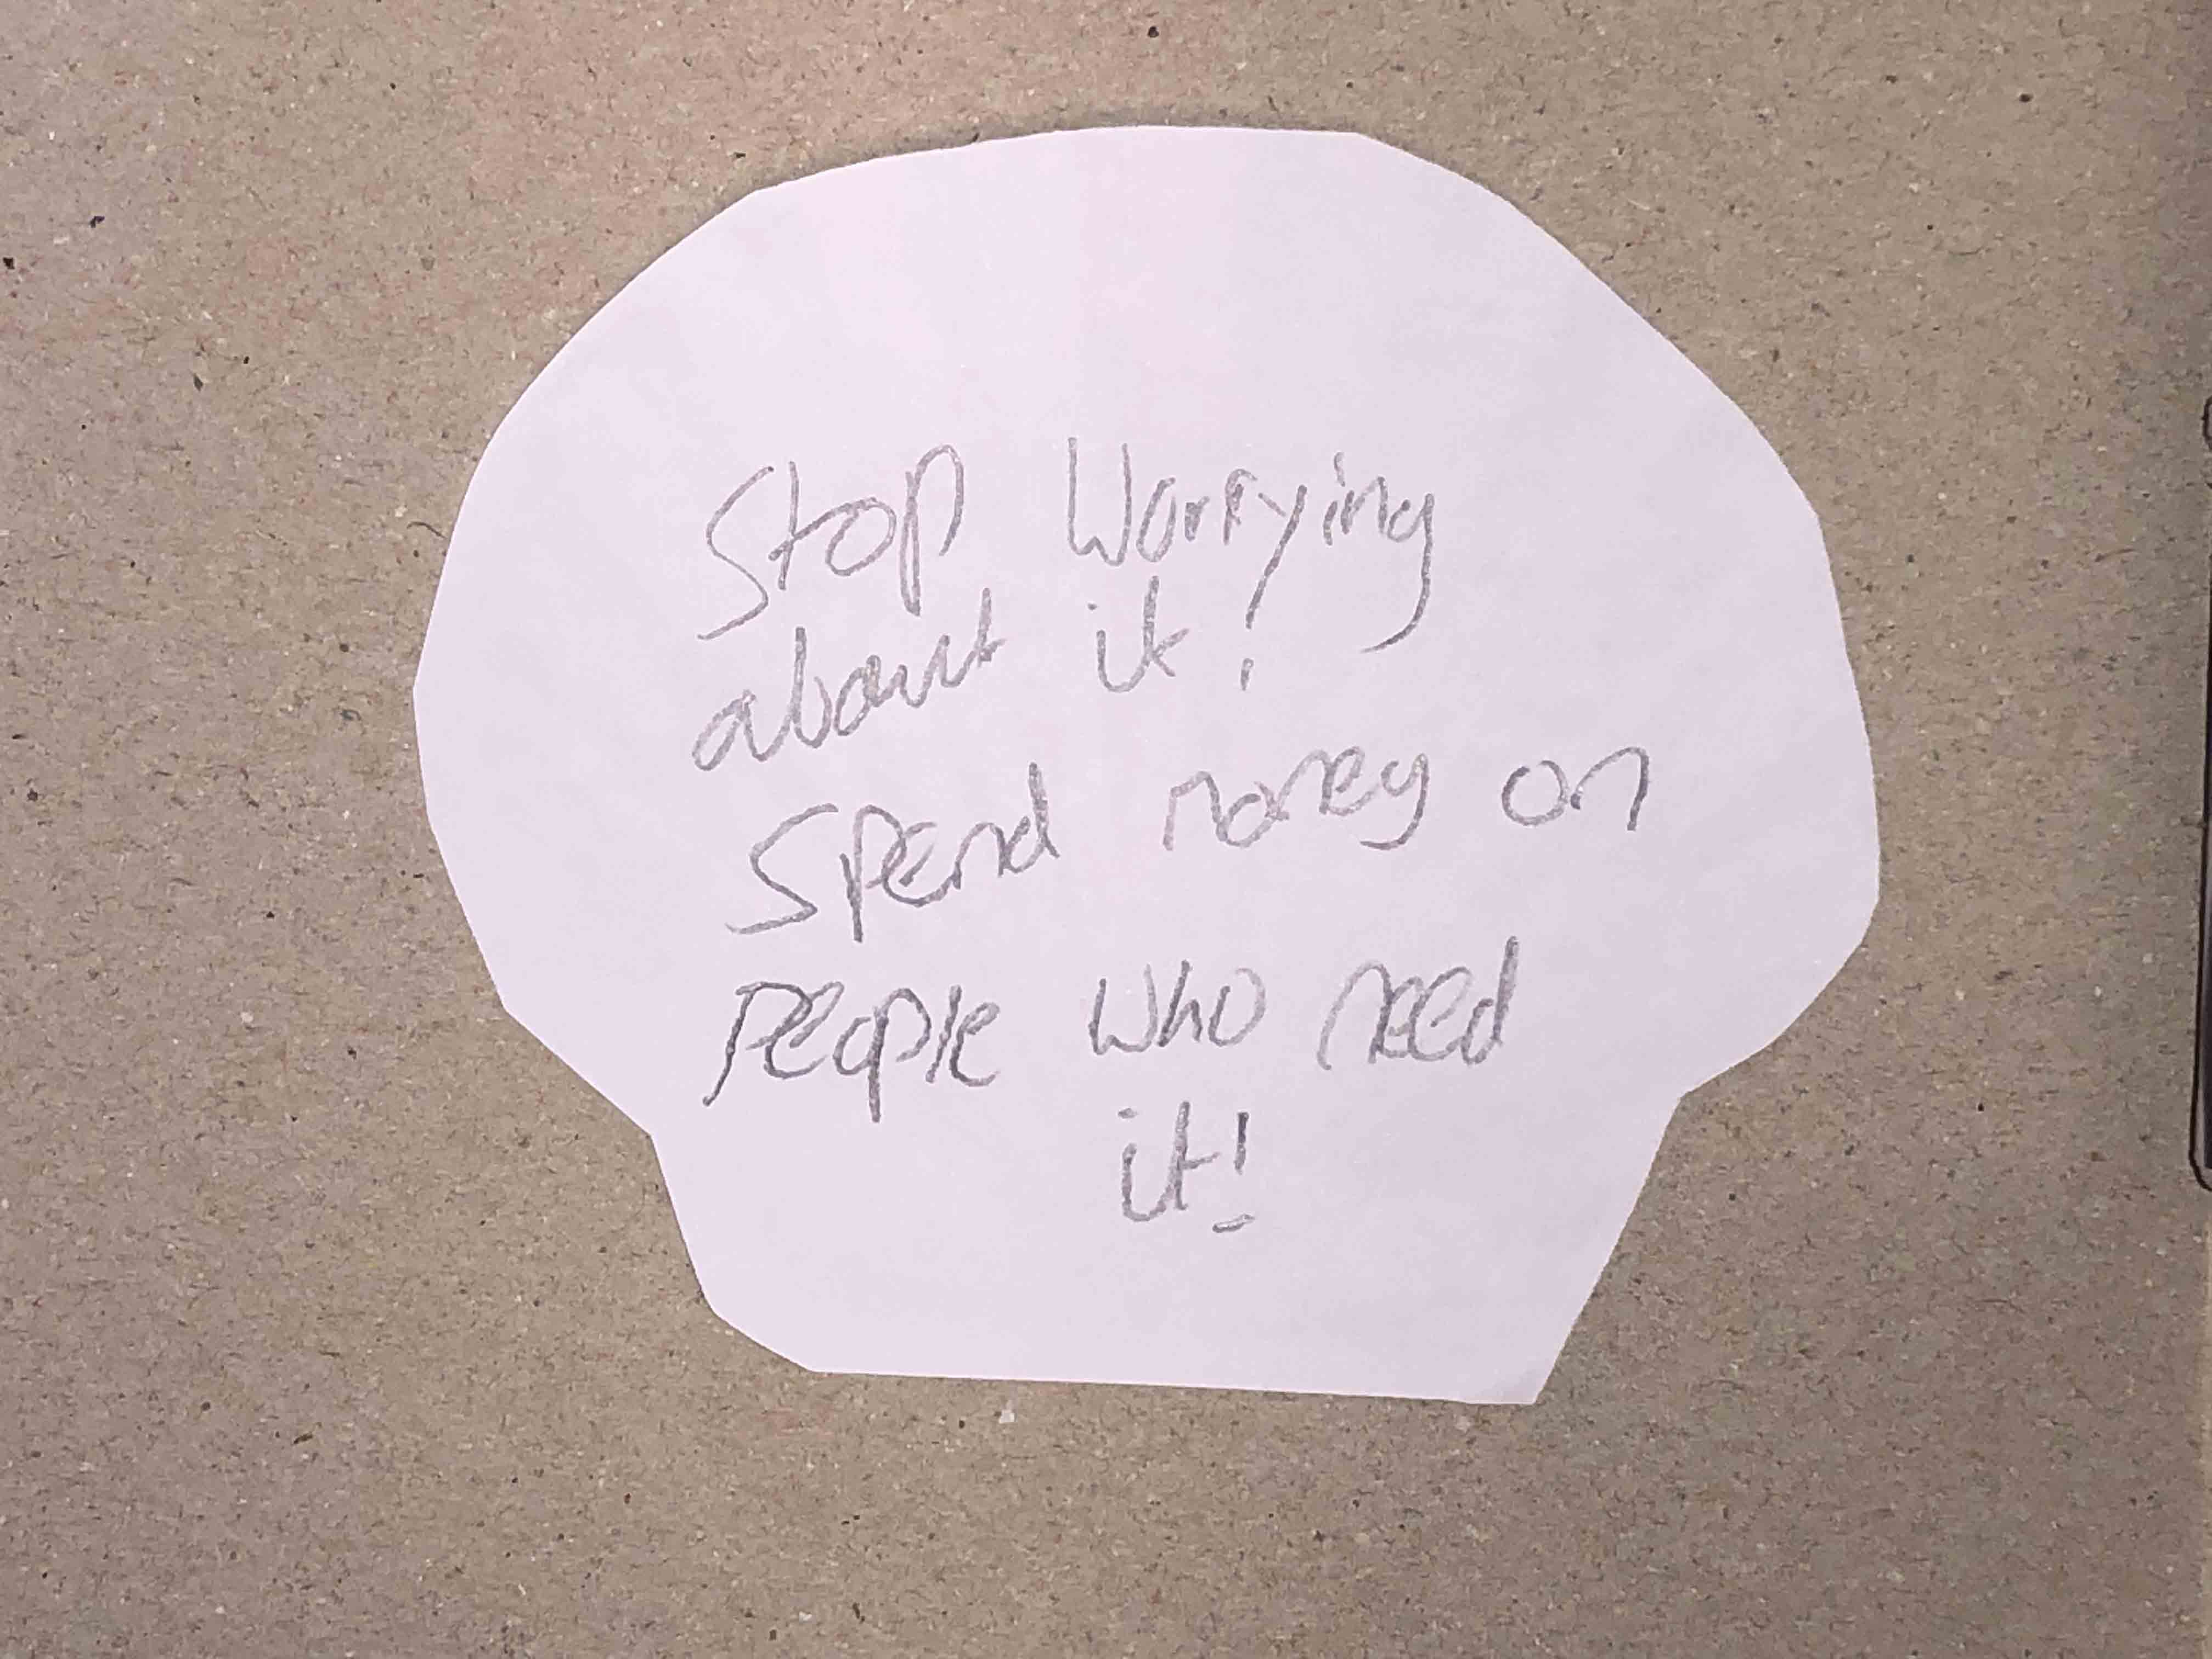 Stop Worrying
about it!
Spend money on
People who need
it!